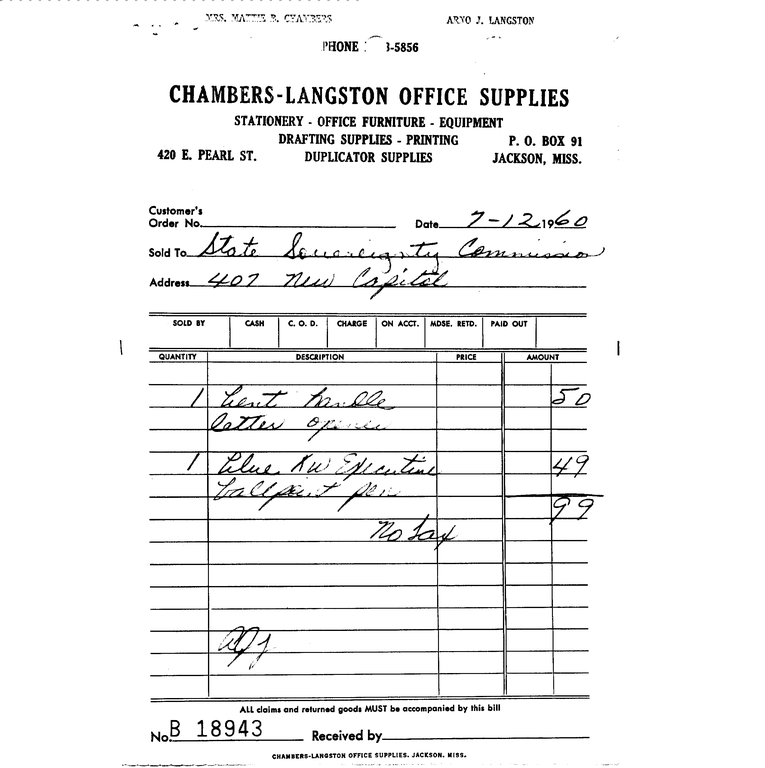 MRS. MATTIE R. CHAMBERS ARNO J. LANGSTON
PHONE 3-5856
CHAMBERS-LANGSTON OFFICE SUPPLIES
STATIONERY - OFFICE FURNITURE - EQUIPMENT
DRAFTING SUPPLIES - PRINTING P. O. BOX 91
420 E. PEARL ST. DUPLICATOR SUPPLIES JACKSON, MISS.
Customer's
Order No. Date 7-12 1960
Sold To State Sovereignty Commission
Address 407 New Capitol
SOLD BY CASH C. O. D. CHARGE ON ACCT. MDSE. RETD. PAID OUT
QUANTITY DESCRIPTION PRICE AMOUNT
1 bent handle 50
letter opener
1 blue KW Executive 49
ballpoint pen
99
No tax
ALL claims and returned goods MUST be accompanied by this bill
No. B 18943 Received by
CHAMBERS-LANGSTON OFFICE SUPPLIES, JACKSON, MISS.